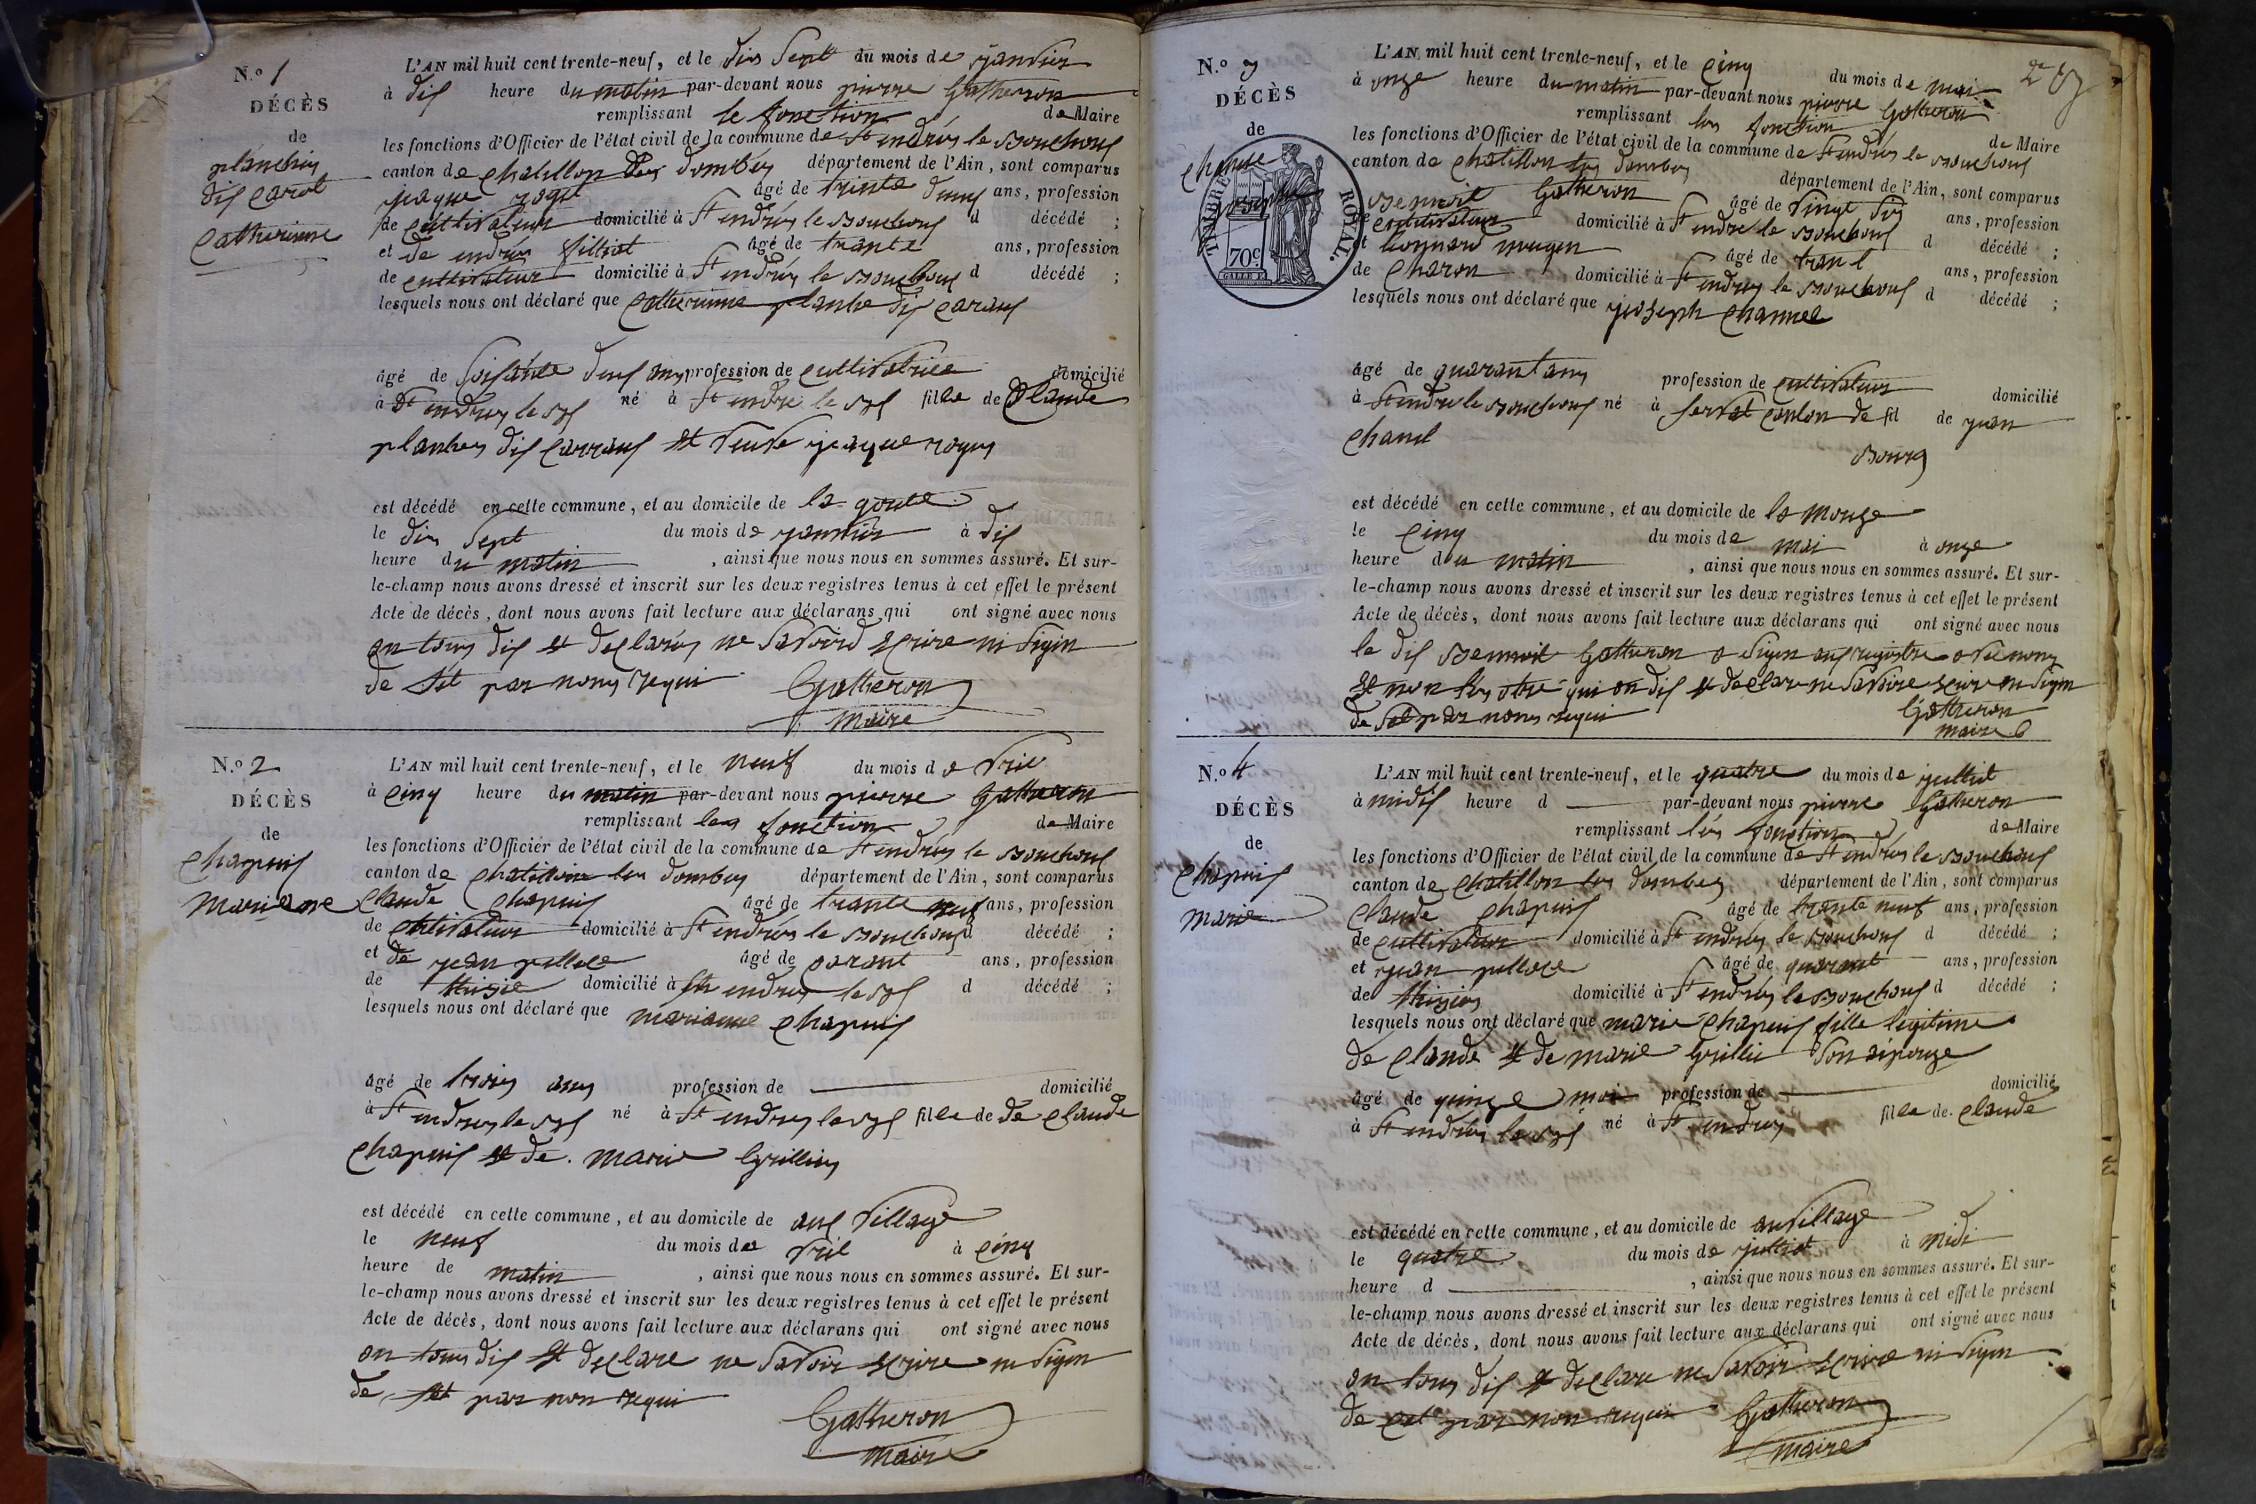 N.º 1
DÉCÈS
de
planchin
dis carot
Catherinne
L'AN mil huit cent trente-neuf, et le dix sept du mois de janvier
à dis heure du matin par-devant nous pierre Gatheron
remplissant le fonction de Maire
les fonctions d'Officier de l'état civil de la commune de St endrés le Bouchous
canton de Chatillon les dombes département de l'Ain, sont comparus
jaque âgé de trinte deus ans, profession
de cultivateur domicilié à St endrés le Bouchous d décédé ;
et de endrés filliat âgé de trante ans, profession
de cultivateur domicilié à St endrés le Bouchous d décédé ;
lesquels nous ont déclaré que Catherinne planche dis caraus
âgé de soisante deus ans profession de cultivatrice domicilié
à St endres le B né à St endré le B fille de Claude
planches dis carraus et veuve jaque
est décédé en cette commune, et au domicile de la goute
le dix sept du mois de janvier à dis
heure du matin , ainsi que nous nous en sommes assuré. Et sur-
le-champ nous avons dressé et inscrit sur les deux registres tenus à cet effet le présent
Acte de décès, dont nous avons fait lecture aux déclarans qui ont signé avec nous
on tous dis et declarés ne savoird ecrire ni signin
de set par nous requi Gatheron
maire
N.º 2
DÉCÈS
de
Chapuis
Marieane
L'AN mil huit cent trente-neuf, et le neuf du mois d a vril
à cinq heure du matin par-devant nous pierre Gatheron
remplissant les fonction de Maire
les fonctions d'Officier de l'état civil de la commune de St endrés le Bouchous
canton de Chatillon les dombes département de l'Ain, sont comparus
Claude Chapuis âgé de trante neuf ans, profession
de cultivateur domicilié à St endrés le Bouchous d décédé ;
et de jean pellace âgé de carant ans, profession
de domicilié à St endres le B d décédé ;
lesquels nous ont déclaré que marianne Chapuis
âgé de trois ans profession de domicilié
à St endres le B né à St endres le B fille de de Claude
Chapuis et de marie Grillies
est décédé en cette commune, et au domicile de aus village
le neuf du mois de a vril à cinq
heure de matin , ainsi que nous nous en sommes assuré. Et sur-
le-champ nous avons dressé et inscrit sur les deux registres tenus à cet effet le présent
Acte de décès, dont nous avons fait lecture aux déclarans qui ont signé avec nous
on tous dis et declare ne savoir ecrire ni signin
de set par non requi Gatheron
Maire
N.º 3
DÉCÈS
de
Chanel
joseph
TIMBRE ROYAL.
70c.
L'AN mil huit cent trente-neuf, et le cinq du mois de mai
à onze heure du matin par-devant nous pierre Gatheron
remplissant les fonction de Maire
les fonctions d'Officier de l'état civil de la commune de St endrés le Bouchous
canton de Chatillon les dombes département de l'Ain, sont comparus
Bennoit Gatheron âgé de vingt sis ans, profession
de cultivateur domicilié à St endre le Bouchous d décédé ;
et leonnard âgé de trant ans, profession
de Charon domicilié à St endres le Bouchous d décédé ;
lesquels nous ont déclaré que joseph Channel
âgé de quarant ans profession de cultivateur domicilié
à St endre le Bouchous né à servat canton de fil de jean
Chanel
Bourg
est décédé en cette commune, et au domicile de la Mouge
le cinq du mois de mai à onze
heure du matin , ainsi que nous nous en sommes assuré. Et sur-
le-champ nous avons dressé et inscrit sur les deux registres tenus à cet effet le présent
Acte de décès, dont nous avons fait lecture aux déclarans qui ont signé avec nous
le dis Bennoit Gatheron a signin aus registre avec nous
et non les otre qui on dis et declare ne savoire ecrire ni signin
de set par nous requi Gatheron
maire
N.º 4
DÉCÈS
de
Chapuis
Marie
L'AN mil huit cent trente-neuf, et le quatre du mois de julliet
à midis heure d par-devant nous pierre Gatheron
remplissant les fonction de Maire
les fonctions d'Officier de l'état civil de la commune de St endrés le Bouchous
canton de Chatillon les dombes département de l'Ain, sont comparus
Claude Chapuis âgé de trante neuf ans, profession
de cultivateur domicilié à St endrés le Bouchous d décédé ;
et jean pellace âgé de quarant ans, profession
de domicilié à St endrés le Bouchous d décédé ;
lesquels nous ont déclaré que marie Chapuis fille legitime
de Claude et de marie Grillie son epouze
âgé de quinze moi profession de domicilié
à St endrés le B né à St endres fille de Claude
est décédé en cette commune, et au domicile de au village
le quatre du mois de julliet à midi
heure d , ainsi que nous nous en sommes assuré. Et sur-
le-champ nous avons dressé et inscrit sur les deux registres tenus à cet effet le présent
Acte de décès, dont nous avons fait lecture aux déclarans qui ont signé avec nous
on tous dis et declare ne savoir ecrire ni signin
de cet par non requi Gatheron
maire